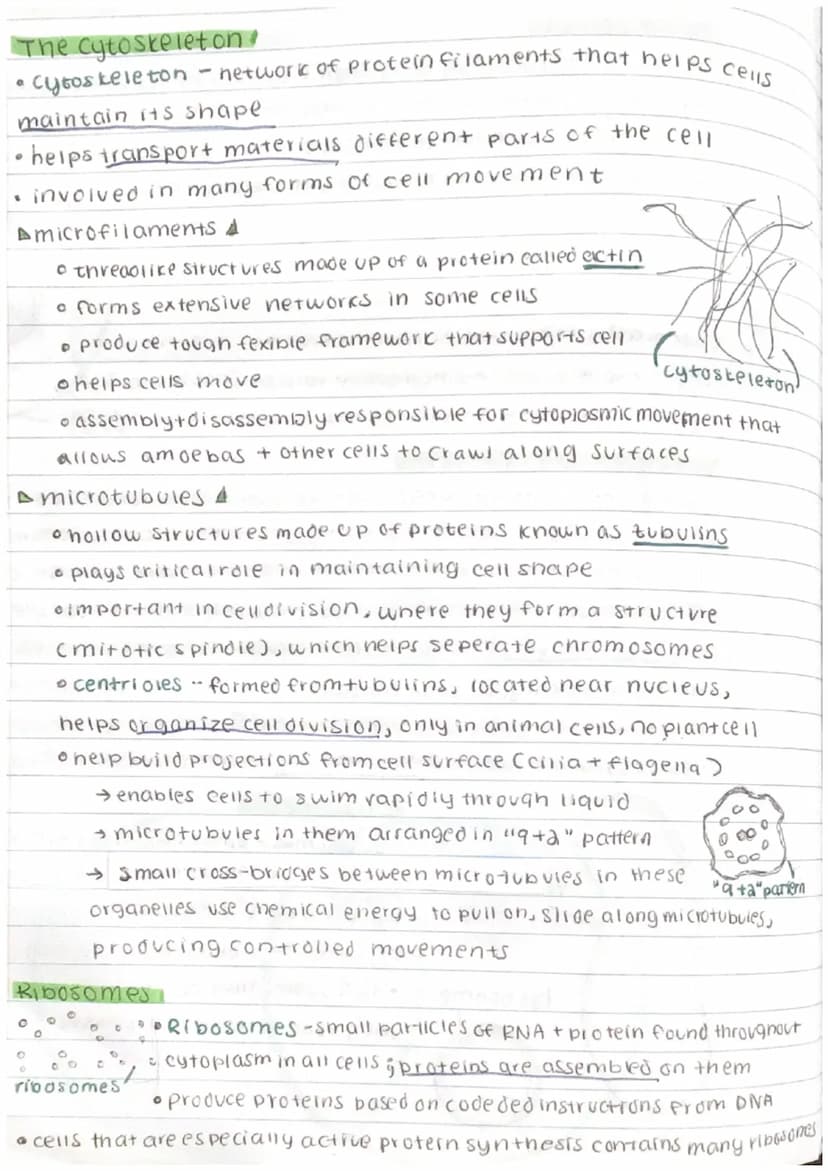 The Cytoskeleton
• cytoskeleton - network of protein filaments that helps cells
maintain its shape
• helps transport materials different parts of the cell
• involved in many forms of cell movement
microfilaments
◦ threadlike structures made up of a protein called actin
◦ forms extensive networks in some cells
◦ produce tough fexible framework that supports cell
◦ helps cells move
cytoskeleton
◦ assembly+disassembly responsible for cytoplasmic movement that
allows amoebas + other cells to crawl along surfaces
microtubules
◦ hollow structures made up of proteins known as tubulins
◦ plays critical role in maintaining cell shape
◦ important in cell division, where they form a structure
(mitotic spindle), which helps seperate chromosomes
◦ centrioles -- formed from tubulins, located near nucleus,
helps organize cell division, only in animal cells, no plant cell
◦ help build projections from cell surface (cilia + flagella)
→ enables cells to swim rapidly through liquid
→ microtubules in them arranged in "9+2" pattern
→ small cross-bridges between microtubules in these
"9+2" pattern
organelles use chemical energy to pull on, slide along microtubules,
producing controlled movements
Ribosomes
• Ribosomes - small particles of RNA + protein found throughout
cytoplasm in all cells ; proteins are assembled on them
ribosomes
• produce proteins based on codeded instructions from DNA
• cells that are especially active protein synthesis contains many ribosomes